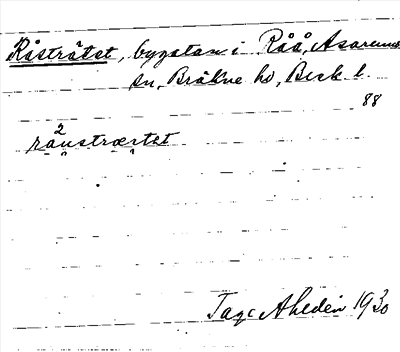 Råsträtet, bygatan i Råå, Asarums
sn, Bräkne hd, Blek. l.
88
2
råustrætet
Tage Ahldén 1930